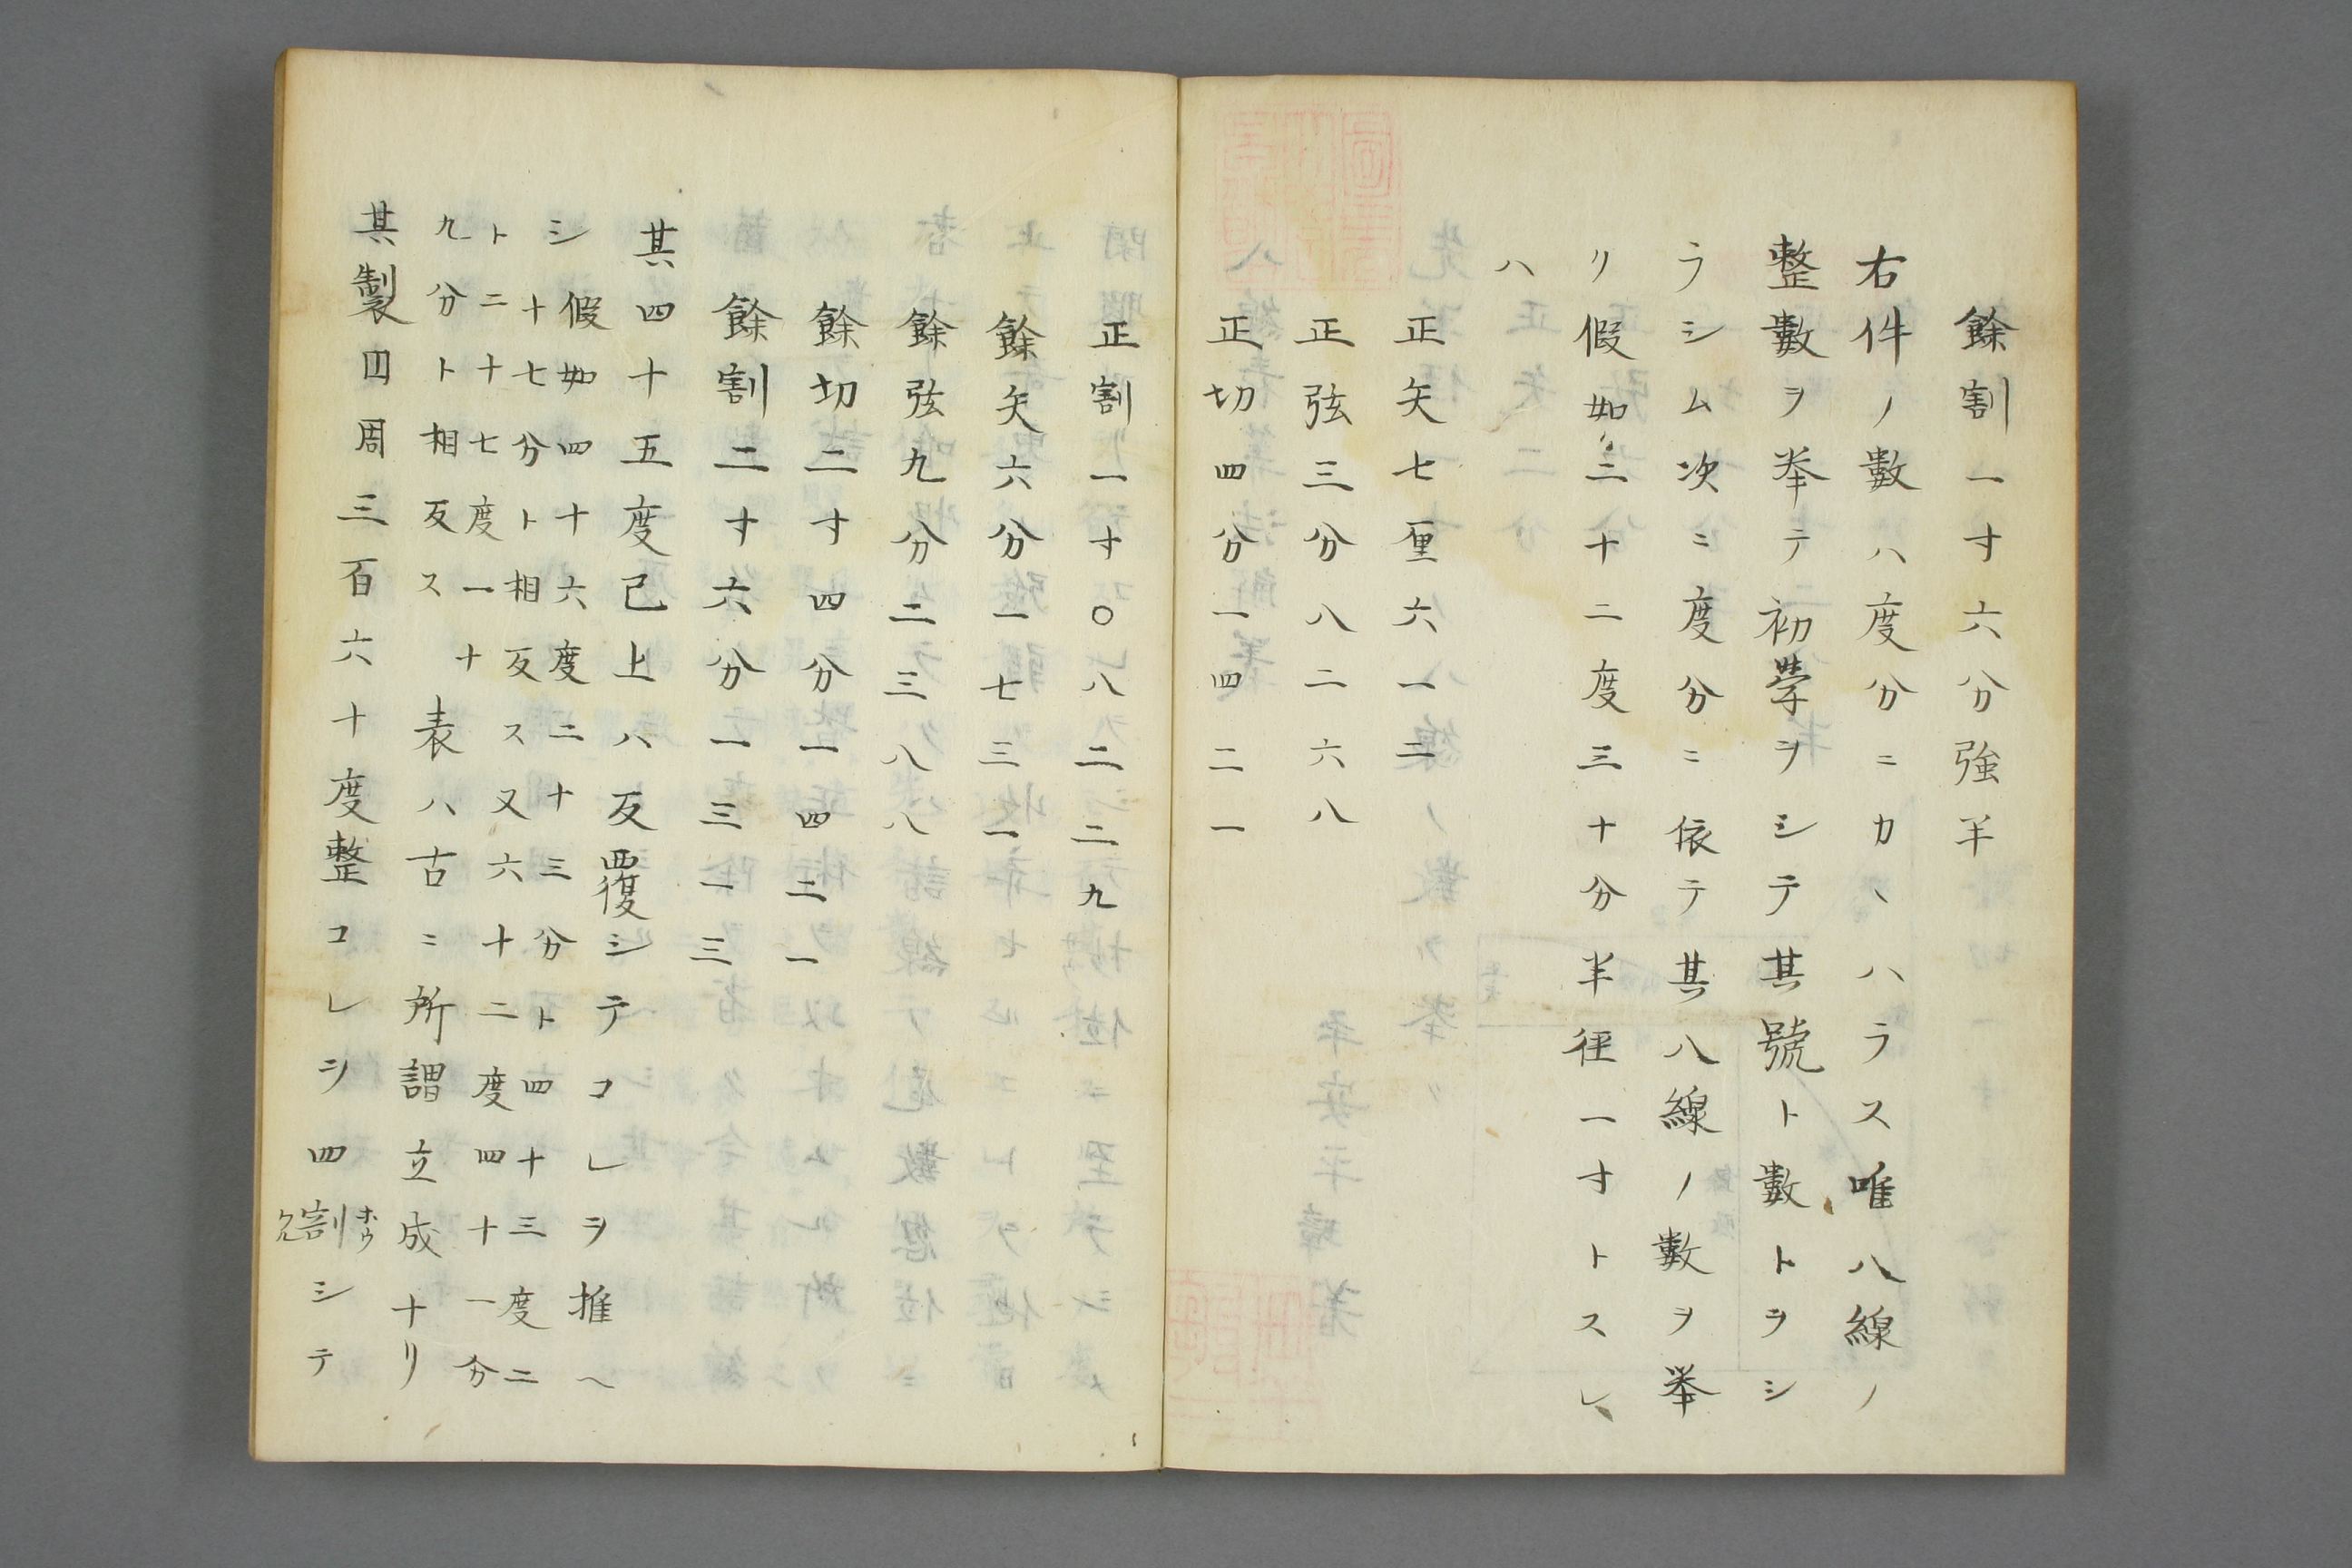 餘割一寸六分強半
右件ノ數ハ度分ニカヽハラス唯八線ノ
整數ヲ挙テ初學ヲシテ其號ト數トヲシ
ラシム次ニ度分ニ依テ其八線ノ數ヲ挙
リ假如ハ二十二度三十分半徑一寸トスレ
ハ
正矢七厘六一二
正弦三分八二六八
正切四分一四二一
正割一寸〇八二二九
餘矢六分一七三一
餘弦九分二三八八
餘切二寸四分一四二一
餘割二寸六分一三一三
其四十五度已上ハ反覆シテコレヲ推ヘ
シ假如四十六度二十三分ト四十三度二
十七分ト相反ス又六十二度四十一分
ト二十七度一十
九分ト相反ス 表ハ古ニ所謂立成ナリ
其製四周三百六十度整コレヲ四割シテ